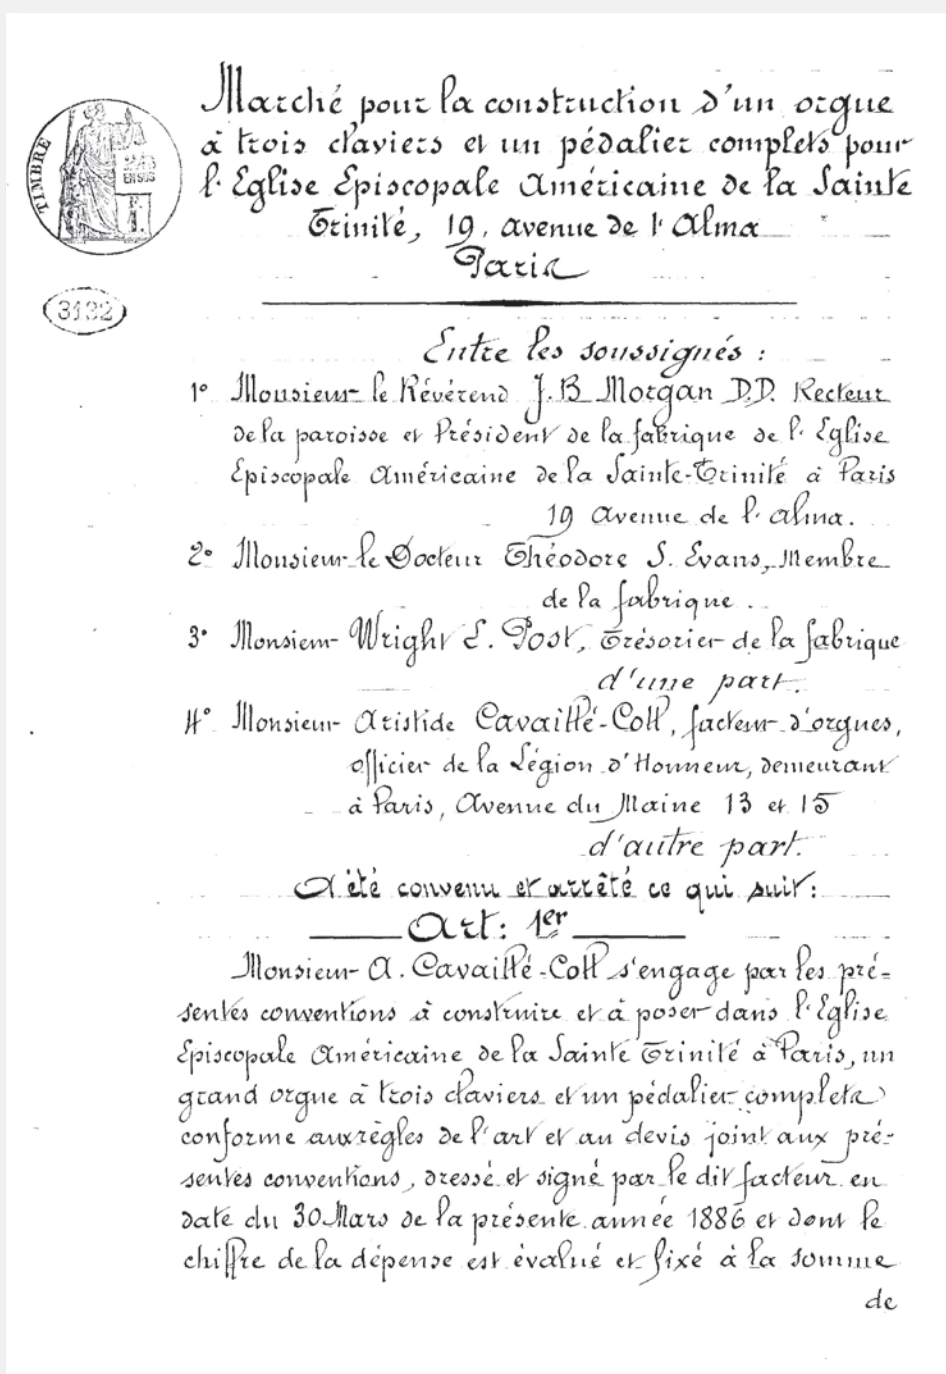 Marché pour la construction d'un orgue
à trois claviers et un pédalier complets pour
l'Eglise Episcopale Américaine de la Sainte
Trinité, 19, avenue de l'Alma
Paris
TIMBRE
3132
Entre les soussignés :
1° Monsieur le Révérend J. B. Morgan D.D. Recteur
de la paroisse et Président de la fabrique de l'Eglise
Episcopale Américaine de la Sainte-Trinité à Paris
19 avenue de l'alma.
2° Monsieur le Docteur Théodore S. Evans, Membre
de la fabrique.
3° Monsieur Wright E. Post, Trésorier de la fabrique
d'une part.
4° Monsieur Aristide Cavaillé-Coll, facteur d'orgues,
officier de la Légion d'Honneur, demeurant
à Paris, Avenue du Maine 13 et 15
d'autre part.
A été convenu et arrêté ce qui suit :
Art: 1er
Monsieur A. Cavaillé-Coll s'engage par les pré-
sentes conventions à construire et à poser dans l'Eglise
Episcopale Américaine de la Sainte Trinité à Paris, un
grand orgue à trois claviers et un pédalier complets
conforme aux règles de l'art et au devis joint aux pré-
sentes conventions, dressé et signé par le dit facteur en
date du 30 Mars de la présente année 1886 et dont le
chiffre de la dépense est évalué et fixé à la somme
de